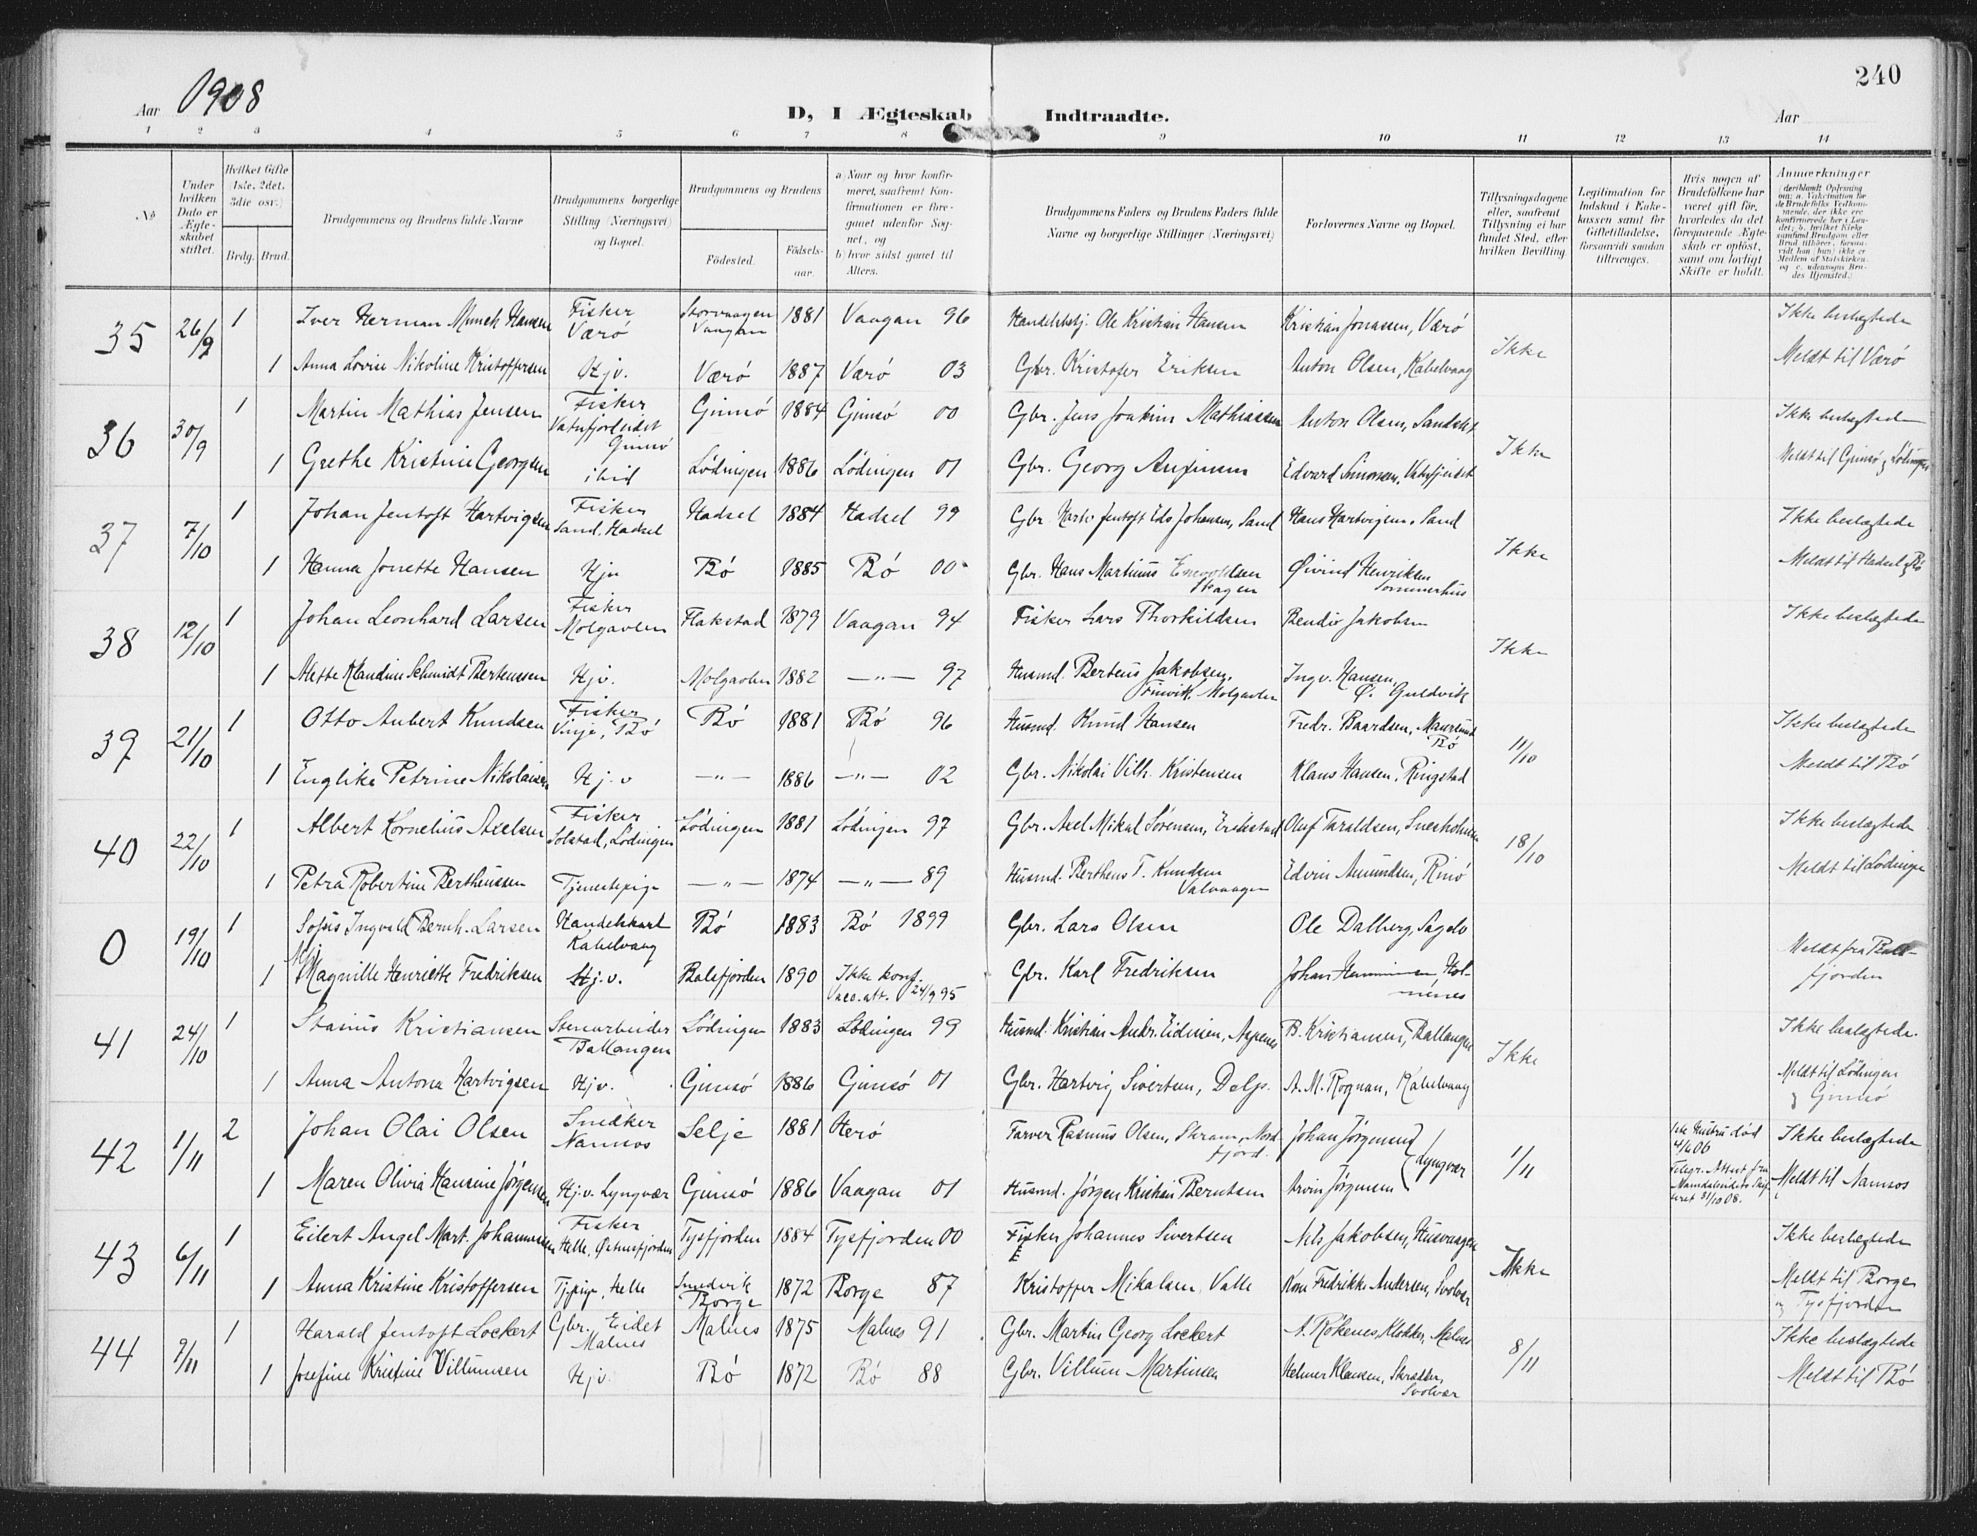 240
Aar 1908
D, I Ægteskab Indtraadte.
Aar
1 2 3 4 5 6 7 8 9 10 11 12 13 14
No
Under hvilken Dato er Ægteskabet stiftet.
Hvilket Gifte 1ste, 2det, 3die osv.)
Brdg. Brud.
Brudgommens og Brudens fulde Navne
Brudgommens borgerlige Stilling (Næringsvei) og Bopæl.
Brudgommens og Brudens
Fødested. Fødselsaar.
a) Naar og hvor konfirmeret, saafremt Konfirmationen er foregaaet udenfor Sognet, og
b) hvor sidst gaaet til Alters.
Brudgommens Faders og Brudens Faders fulde Navne og borgerlige Stillinger (Næringsvei)
Forlovernes Navne og Bopæl.
Tillysningsdagene eller, saafremt Tillysning ei har fundet Sted, efter hvilken Bevilling.
Legitimation for Indskud i Enkekassen samt for Giftetilladelse, forsaavidt saadan tiltrænges.
Hvis nogen af Brudefolkene har været gift før, hvorledes da det foregaaende Ægteskab er opløst, samt om lovligt Skifte er holdt.
Anmerkninger
35 26/9 1 Iver Herman Munch Hansen Fisker Værö Storvaagen Vaagan 1881 Vaagan 96 Handelsbtj. Ole Kristian Hansen Kristian Jonassen, Værö Ikke Ikke beslægtede
1 Anna Lovise Nikoline Kristoffersen Hjv. Værö 1887 Værö 03 Gbr. Kristofer Eriksen Anton Olsen, Kabelvaag Meldt til Værö
36 30/9 1 Martin Mathias Jensen Fisker Vatnfjordeidet Gimsö Gimsö 1884 Gimsö 00 Gbr. Jens Joakim Mathiassen Anton Olsen, Ikke Ikke beslægtede
1 Grethe Kristine Georgsen ibid Lödingen 1886 Lödingen 01 Gbr. Georg Edvard Simonsen, Meldt til Gimsö og Lödingen
37 7/10 1 Johan Jentoft Hartvigsen Fisker Sand, Hadsel Hadsel 1884 Hadsel 99 Gbr. Hartv. Jentoft Eds Johansen, Sand Hans Hartvigsen, Sand Ikke Ikke beslægtede
1 Hanna Jonette Hansen Hjv Bö 1885 Bö 00 Gbr. Hans Martinus Skagen Øivind Henriksen Sommerhus Meldt til Hadsel og Bö
38 12/10 1 Johan Leonhard Larsen Fisker Molgavlen Flakstad 1879 Vaagan 94 Fisker Lars Thorkildsen Bendix Jakobsen Ikke Ikke beslægtede
1 Mette Klaudine Schmidt Berteussen Hjv. Molgavlen 1882 —"— 97 Husmd. Berteus Jakobsen, Molgavlen Ingv. Hansen, Ø. Guldvik
39 21/10 1 Otto Aubert Knudsen Fisker Vinje, Bö Bö 1881 Bö 96 Husmd. Knud Hansen Fredr. Baardsen, Maursund Bö 11/10 Ikke beslægtede
1 Englike Petrine Nikolaisen Hj.v —"— 1886 —"— 02 Gbr. Nikolai Vilh. Kristensen Klaus Hansen, Ringstad Meldt til Bö
40 22/10 1 Albert Kornelius Axelsen Fisker Solstad, Lödingen Lödingen 1881 Lödingen 97 Gbr. Axel Mikal Sørensen, Erikstad Oluf Taraldsen, Svesholmen 18/10 Ikke beslægtede
1 Petra Robertine Bertheussen Tjenestepige —"— 1874 —"— 89 Husmd. Bertheus T. Knudsen Valvaagen Edvin Amundsen, Rinö Meldt til Lödingen
0 19/10 1 Sofus Ingvald Bernh. Larsen Handelskarl Kabelvaag Bö 1883 Bö 1899 Gbr. Lars Olsen Ole Dalberg, Meldt fra Balsfjorden
1 Magnille Henriette Fredriksen Hj.v. Balsfjorden 1890 Ikke konf. Vacc.att. 24/9 95 Gbr. Karl Fredriksen Johan
41 24/10 1 Stasius Kristiansen Stenarbeider Ballangen Lödingen 1883 Lödingen 99 Husmd. Kristian Andr. B. Kristiansen, Ballangen Ikke Ikke beslægtede.
1 Anna Antona Hartvigsen Hjv. Gimsö 1886 Gimsö 01 Gbr. Hartvig Sivertsen, Delp. A. M. Rognan, Kabelvaag Meldt til Lödingen og Gimsö
42 1/11 2 Johan Olai Olsen Snedker Namsos Selje 1881 Herö Farver Rasmus Olsen, Nordfjord. Johan Jörgensen Lyngvær 1/11 1ste Hustru död 4/6 06 Telegr. Attest fra Namdalseidets Skifteret 31/10 08. Ikke beslægtede
1 Maren Olivia Hansine Jörgensen Hj.v. Lyngvær Gimsö 1886 Vaagan 01 Husmd. Jörgen Kristian Berntsen Arvin Jörgensen Meldt til Namsos
43 6/11 1 Eilert Angel Mart. Johannessen Fisker Helle, Tysfjorden 1884 Tysfjorden 00 Fisker Johannes Sivertsen Nils Jakobsen, Husvaagen Ikke Ikke beslægtede
1 Anna Kristine Kristoffersen Tj.pige Helle Sundvik Borge 1872 Borge 87 Kristoffer Mikalsen, Valle Kone Fredrikke Andersen, Svolvær Meldt til Borge og Tysfjorden
44 9/11 1 Harald Jentoft Lockert Gbr. Eidet Malnes Malnes 1875 Malnes 91 Gbr. Martin Georg Lockert A. Rökenes, Klokker, Malnes 8/11 Ikke beslægtede
1 Josefine Kristine Villumsen Hjv. Bö 1872 Bö 88 Gbr. Villum Martinsen Helmer Klausen, Skrædder, Svolvær Meldt til Bö